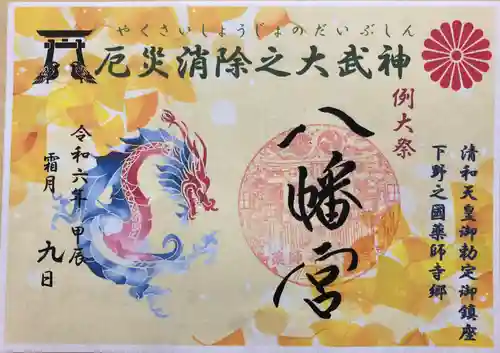 やくさいしょうじょのだいぶしん
厄災消除之大武神
例大祭
八幡宮
清和天皇御勅定御鎮座
下野之國薬師寺郷
令和六年甲辰
霜月九日